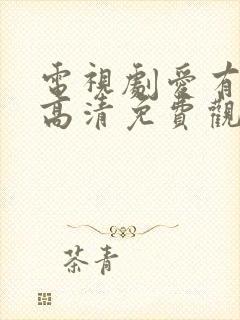 電視劇愛有
高清免費觀
茶青